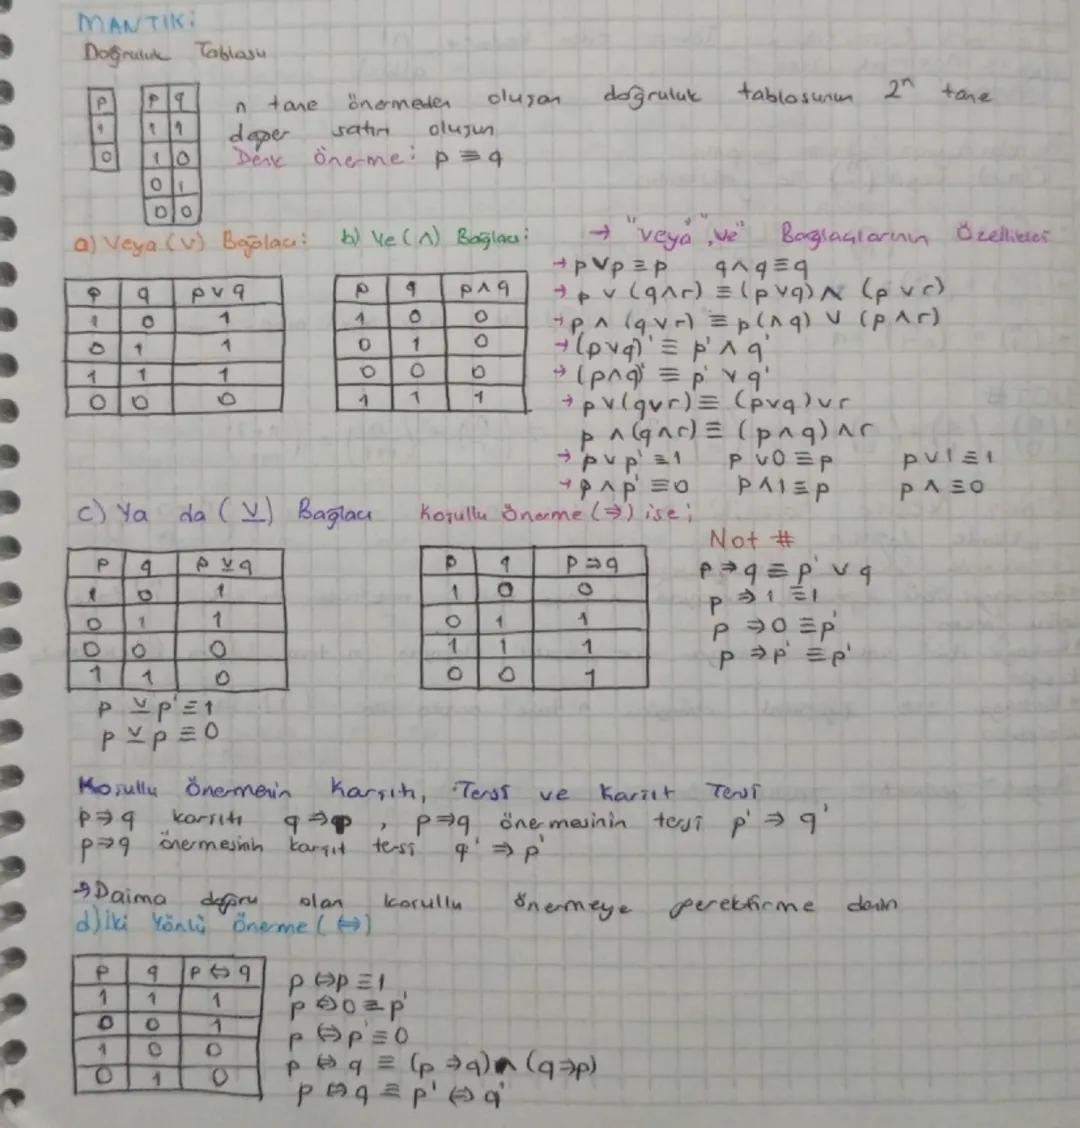 MANTIK:
Doğruluk Tablosu
p
1
0
p q
1 1
1 0
0 1
0 0
n tane önermeden oluşan doğruluk tablosunun 2ⁿ tane
değer satırı oluşur
Denk önerme: p ≡ q
a) Veya (∨) Bağlacı:
p q p∨q
1 0 1
0 1 1
1 1 1
0 0 0
b) Ve (∧) Bağlacı:
p q p∧q
1 0 0
0 1 0
0 0 0
1 1 1
→ "veya", "ve" Bağlaçlarının Özellikleri
→ p∨p ≡ p q∧q ≡ q
→ p ∨ (q∧r) ≡ (p∨q) ∧ (p∨r)
→ p ∧ (q∨r) ≡ p(∧q) ∨ (p∧r)
→ (p∨q)' ≡ p' ∧ q'
→ (p∧q)' ≡ p' ∨ q'
→ p∨(q∨r) ≡ (p∨q)∨r
p ∧ (q∧r) ≡ (p∧q) ∧r
→ p∨p' ≡ 1 p∨0 ≡ p p∨1 ≡ 1
→ p∧p' ≡ 0 p∧1 ≡ p p∧ ≡ 0
c) Ya da (⊻) Bağlacı
p q p⊻q
1 0 1
0 1 1
0 0 0
1 1 0
p ⊻ p' ≡ 1
p ⊻ p ≡ 0
Koşullu Önerme (⇒) ise;
p q p⇒q
1 0 0
0 1 1
1 1 1
0 0 1
Not #
p ⇒ q ≡ p' ∨ q
p ⇒ 1 ≡ 1
p ⇒ 0 ≡ p'
p ⇒ p' ≡ p'
Koşullu Önermenin Karşıtı, Tersi ve Karşıt Tersi
p⇒q karşıtı q⇒p , p⇒q önermesinin tersi p' ⇒ q'
p⇒q önermesinin karşıt tersi q' ⇒ p'
→ Daima doğru olan koşullu önermeye gerektirme denir
d) İki Yönlü Önerme (⇔)
p q p⇔q
1 1 1
0 0 1
1 0 0
0 1 0
p ⇔ p ≡ 1
p ⇔ 0 ≡ p'
p ⇔ p' ≡ 0
p ⇔ q ≡ (p ⇒ q) ∧ (q⇒p)
p ⇔ q ≡ p' ⇔ q'